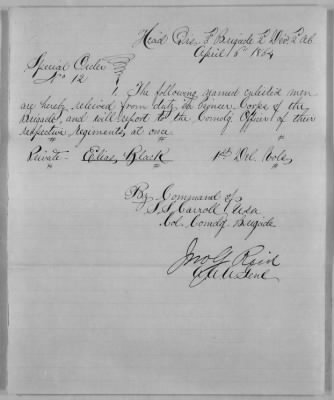 Head Qrs. 3d Brigade 2d Div 2d AC
April 5th 1864
Special Order
No 12.
1. The following named enlisted men
are hereby relieved from duty in Pioneer Corps of the
Brigade, and will report to the Comdg Officer of their
respective regiments, at once
Private - Elias Black 1st Del. Vols
By Command of
S. S. Carroll, USA
Col. Comdg Brigade
Jno G Reid
A.A.A. Genl